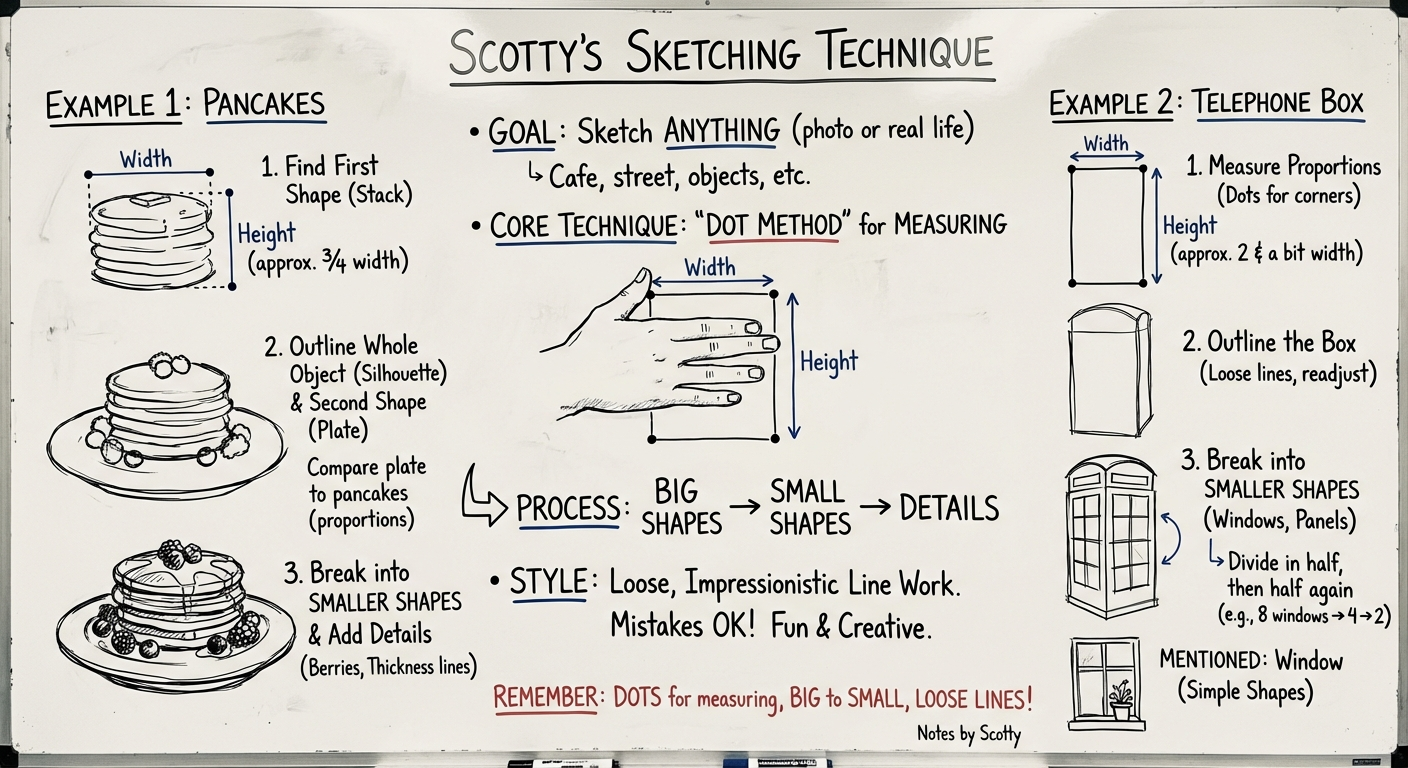 SCOTTY'S SKETCHING TECHNIQUE
EXAMPLE 1: PANCAKES
Width
Height
(approx. ¾ width)
1. Find First
Shape (Stack)
2. Outline Whole
Object (Silhouette)
& Second Shape
(Plate)
Compare plate
to pancakes
(proportions)
3. Break into
SMALLER SHAPES
& Add Details
(Berries, Thickness lines)
• GOAL: Sketch ANYTHING (photo or real life)
↳ Cafe, street, objects, etc.
• CORE TECHNIQUE: "DOT METHOD" for MEASURING
Width
Height
PROCESS: BIG SHAPES → SMALL SHAPES → DETAILS
• STYLE: Loose, Impressionistic Line Work.
Mistakes OK! Fun & Creative.
REMEMBER: DOTS for measuring, BIG to SMALL, LOOSE LINES!
Notes by Scotty
EXAMPLE 2: TELEPHONE BOX
Width
1. Measure Proportions
(Dots for corners)
Height
(approx. 2 & a bit width)
2. Outline the Box
(Loose lines, readjust)
3. Break into
SMALLER SHAPES
(Windows, Panels)
↳ Divide in half,
then half again
(e.g., 8 windows → 4 → 2)
MENTIONED: Window
(Simple Shapes)